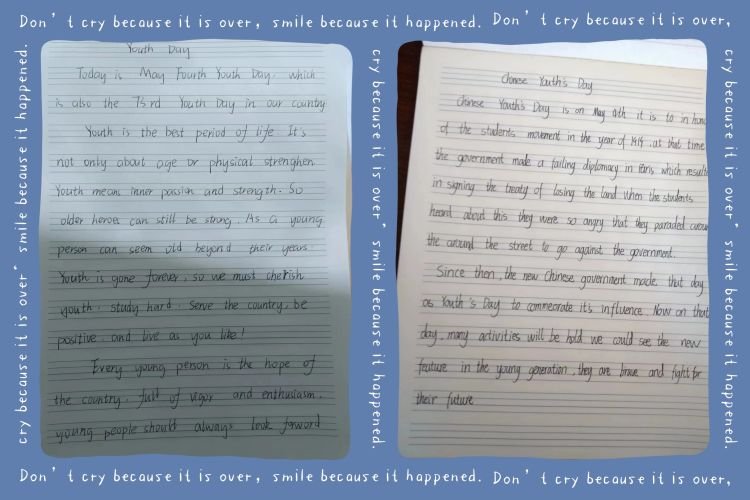 Don't cry because it is over, smile because it happened. Don't cry because it is over,
cry because it is over" smile because it happened.
Youth Day
Today is May Fourth Youth Day. which
is also the 73rd Youth Day in our country
Youth is the best period of life It's
not only about age or physical strenghen.
Youth means inner passion and strength. So
older heroes can still be strong. As a young
person can seem old beyond their years.
Youth is gone forever, so we must cherish
youth. study hard. Serve the country, be
positive. and live as you like!
Every young person is the hope of
the country. full of vigor and enthusiasm.
young people should always look forward
cry because it is over" smile because it happened.
Chinese Youth's Day
Chinese Youth's Day is on May 4th it is to in
of the students movement in the year of 1919. at that time
the government made a failing diplomacy in Paris which
in signing the treaty of losing the land when the students
heard about this they were so angry that they paraded
the around the street to go against the government.
Since then, the new Chinese government made that day
as Youth's Day to commeorate it's influence. Now on that
day, many activities will be hold we could see the new
feature in the young generation, they are brave and fight for
their future
cry because it is over" smile because it happened.
Don't cry because it is over, smile because it happened. Don't cry because it is over,